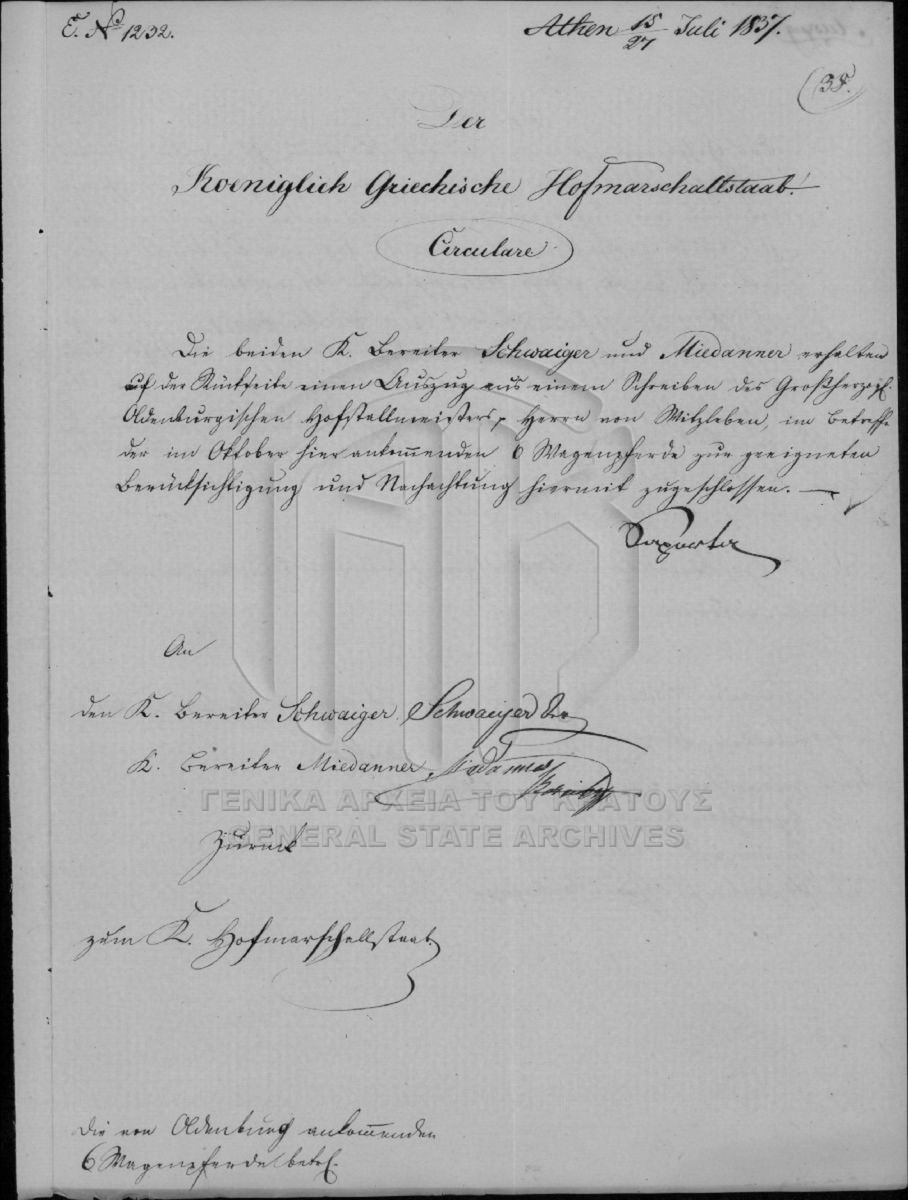 E. No 1232.
Athen 15/27 Juli 1837.
(38.
Der
Koeniglich Griechische Hofmarschallstaab.
Circulare
Die beiden K. Bereiter Schwaiger und Miedanner erhalten
auf der Rückseite einen Auszug aus einem Schreiben des Großherzogl.
Oldenburgischen Hofstallmeisters, Herrn von Witzleben, im Betreffe
der im Oktober hier ankom̅enden 6 Wagenpferde zur geeigneten
Berücksichtigung und Nachachtung hiermit zugeschlossen. —
An
den K. Bereiter Schwaiger. Schwaiger
K. Bereiter Miedanner Miedanner
ΓΕΝΙΚΑ ΑΡΧΕΙΑ ΤΟΥ ΚΡΑΤΟΥΣ
GENERAL STATE ARCHIVES
Zurück
zum K. Hofmarschallstaab.
Die von Oldenburg ankom̅enden
6 Wagenpferde betr.